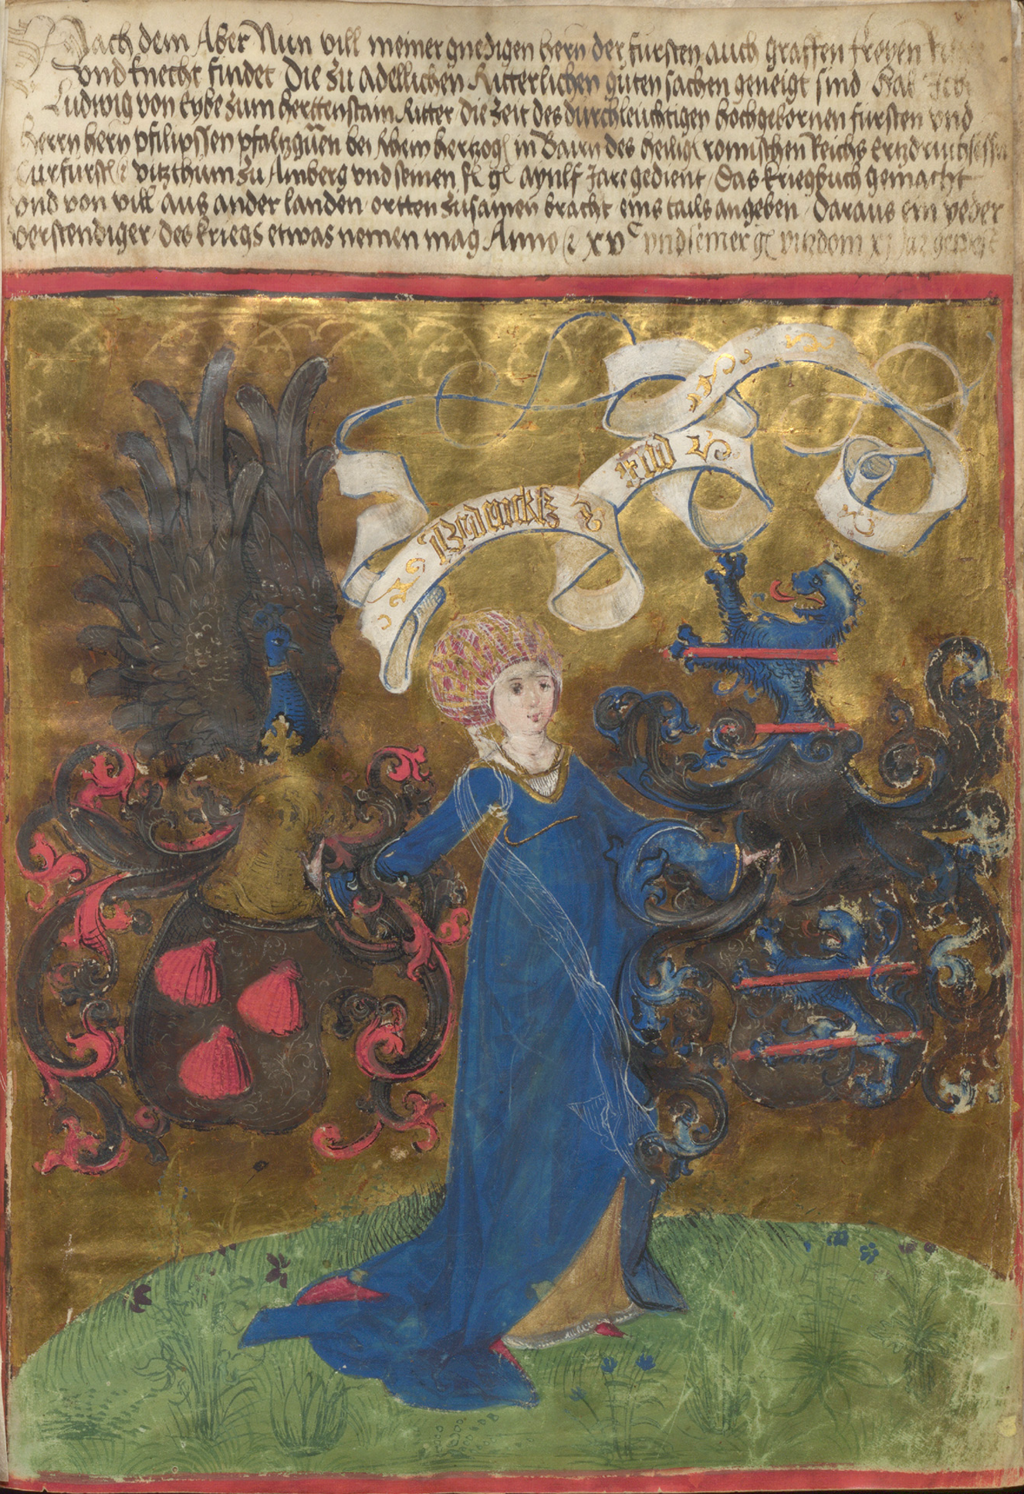 Nach dem Aber Nun vill meiner gnedigen hern der fursten auch graffen freyen
vnd knecht findet Die zu adellichen Ritterlichen guten sachen geneigt sind Hab Ich
Ludwig von eybe zum hertenstain Ritter die Zeit des durchleuchtigen hochgebornen fursten vnd
Herrn hern pfilipssen pfaltzgrauen bei Rhein hertzog in Bairn des heilig romischen Reichs
Curfurst vitzthum zu Amberg vnd seinen gedient / Das kriegbuch gemacht
vnd von vill aus ander landen ortten zusamen bracht eins tails angeben / Daraus ein yeder
verstendiger des kriegs etwas nemen mag Anno XVc vnd
Bedenncks End